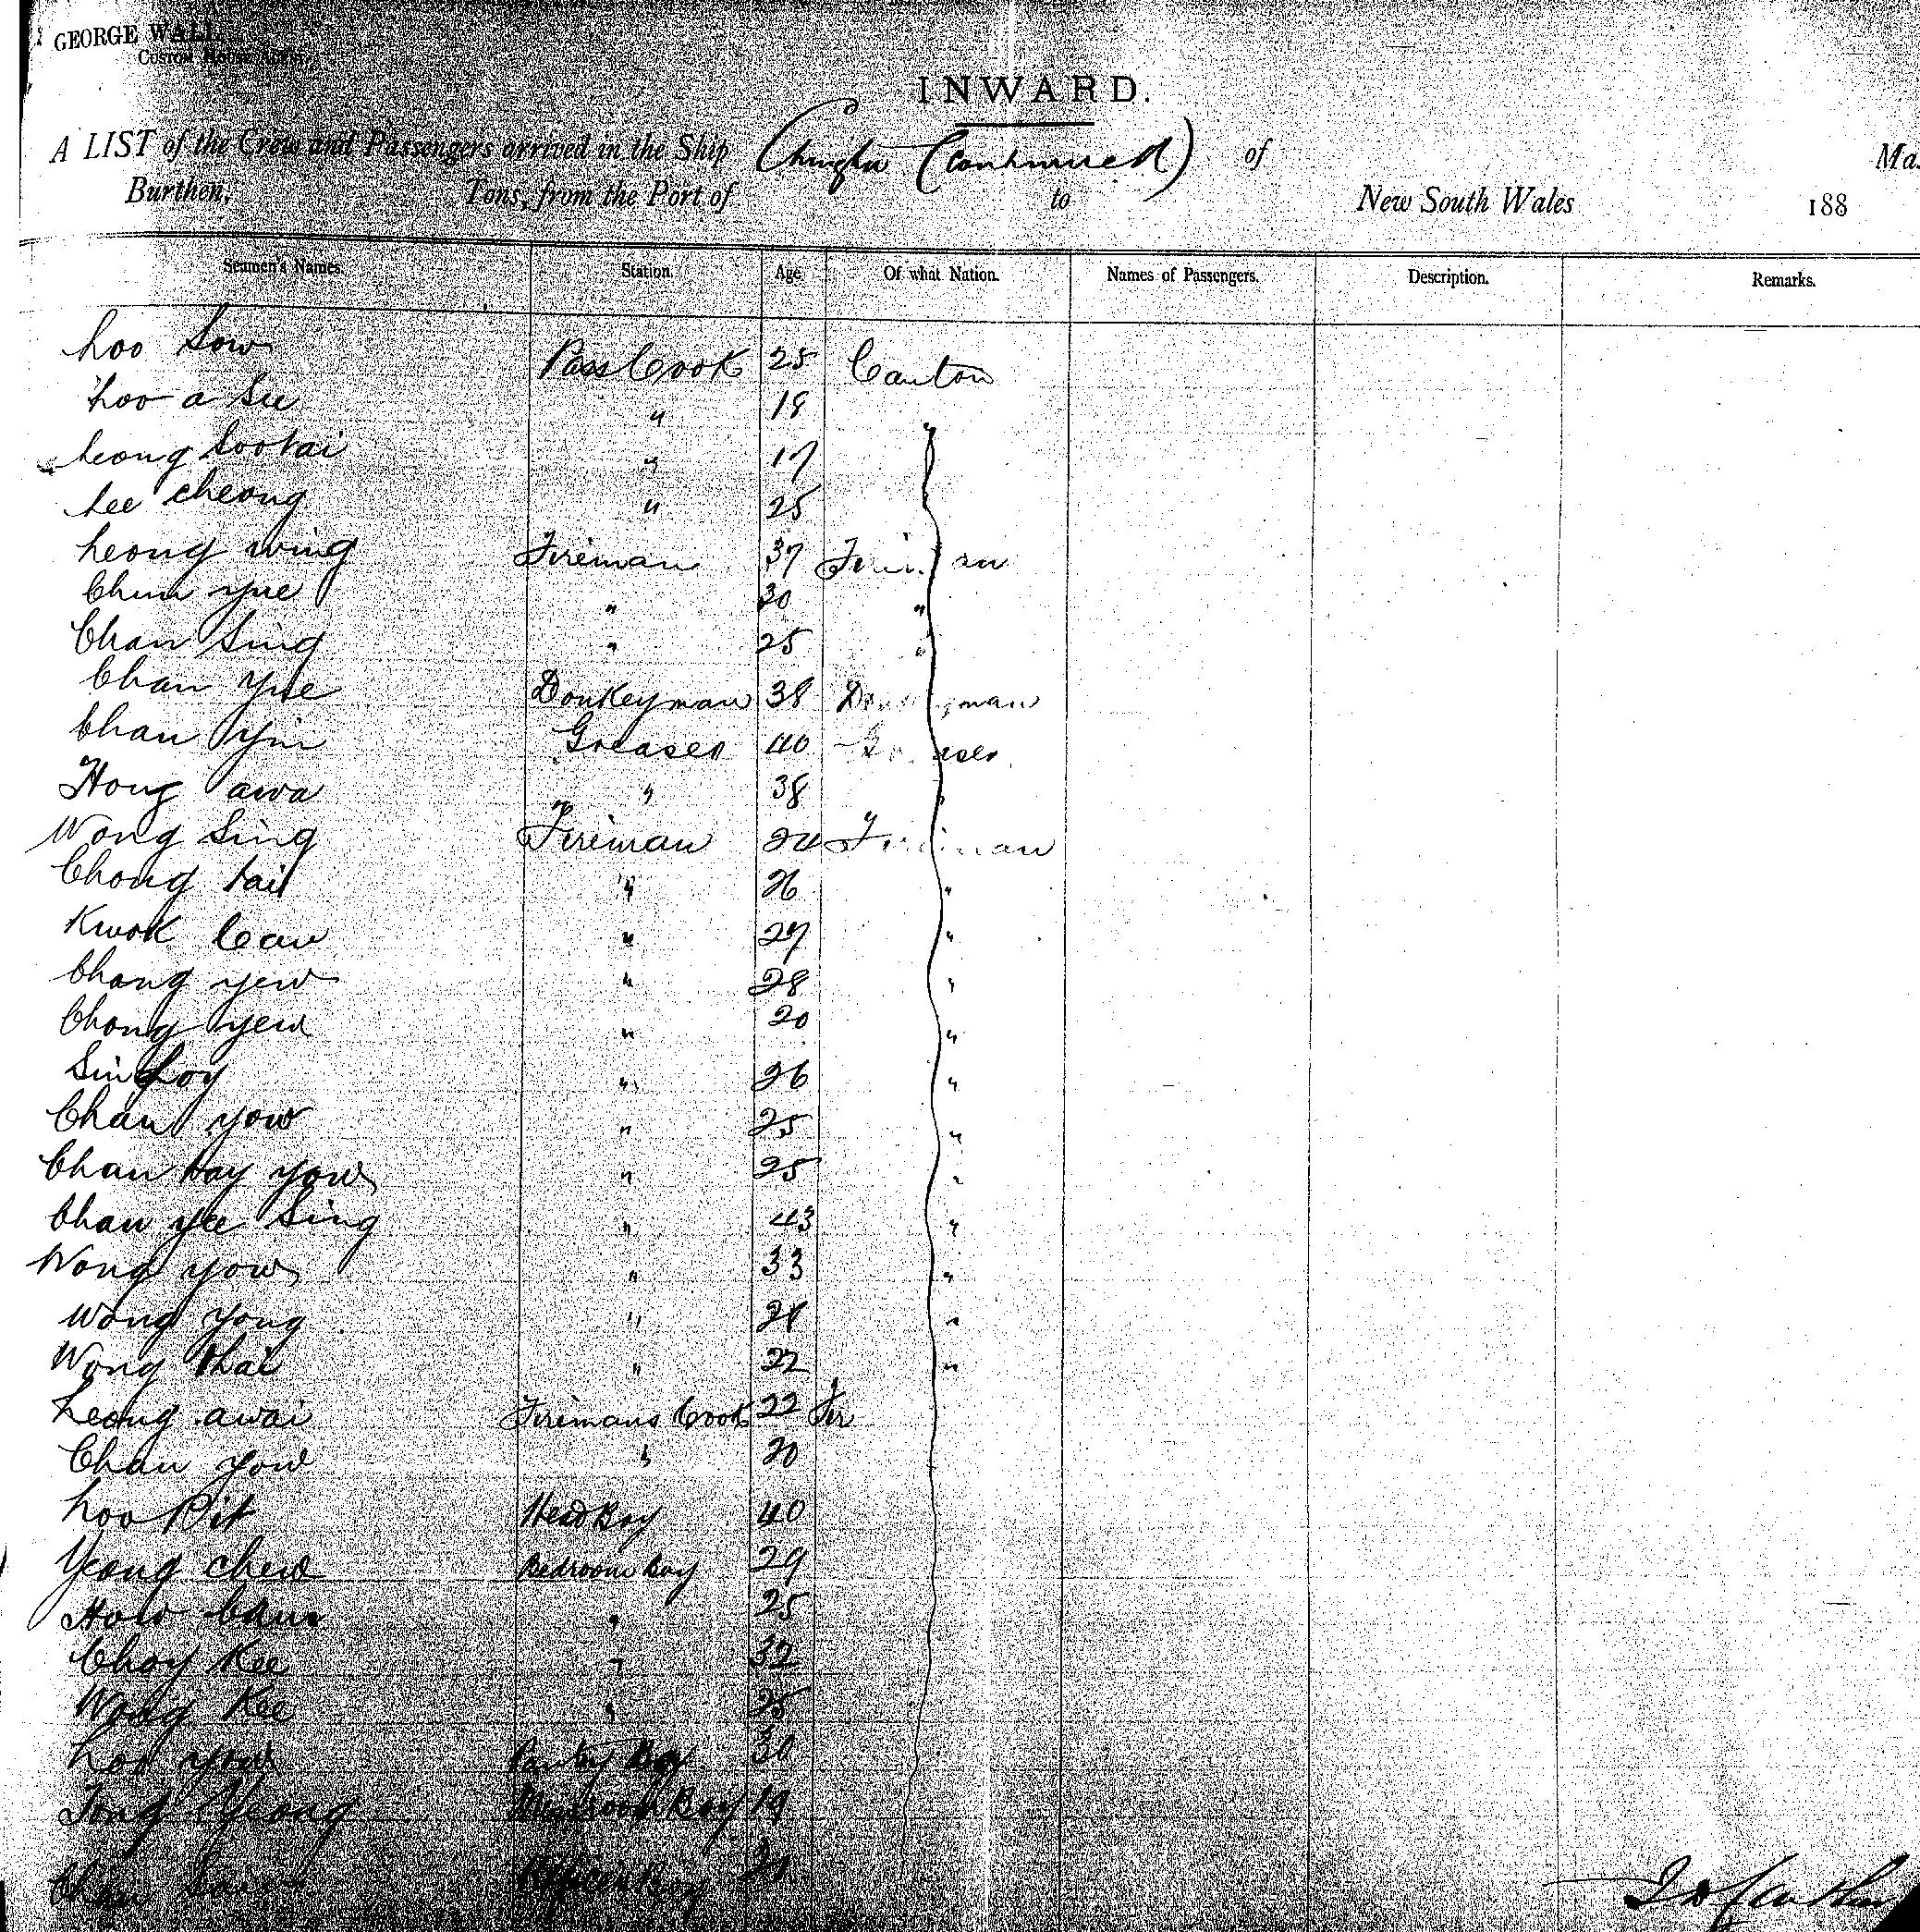 GEORGE WALL,
CUSTOM HOUSE AGENT.
INWARD.
A LIST of the Crew and Passengers arrived in the Ship (Continued) of Ma
Burthen, Tons, from the Port of to New South Wales 188
Seamen's Names. Station. Age Of what Nation. Names of Passengers. Description. Remarks.
Loo Sow Pass Cook 25 Canton
Loo a See " 18 "
Leong Sootai " 17
Lee cheong " 25
Leong wing Fireman 37
Chun yue " 30 "
Chan Sing " 25 "
Chan yue Donkeyman 38 Donkeyman
Chan yin Greaser 40 Greaser
Hong awa " 38 "
Wong Sing Fireman 24 Fireman
Chong tai " 26 "
Kwok Can " 27 "
Chong yew " 28 "
Chong yew " 20 "
Sin Loy " 26 "
Chan yow " 25 "
Chan Hay yow " 25 "
Chan yee Sing " 43 "
Wong yow " 33 "
Wong yong " "
Wong thai " 22 "
Leong awai Firemans Cook 22 Fir
Chan yow " 20
Loo Pit Head Boy 40
Yeong chew Bedroom Boy 29
How " 25
Choy Kee " 32
Wong Kee " 25
Loo yow Pantry Boy 30
Tong Yeong Messroom Boy 19
Chan Officers Boy